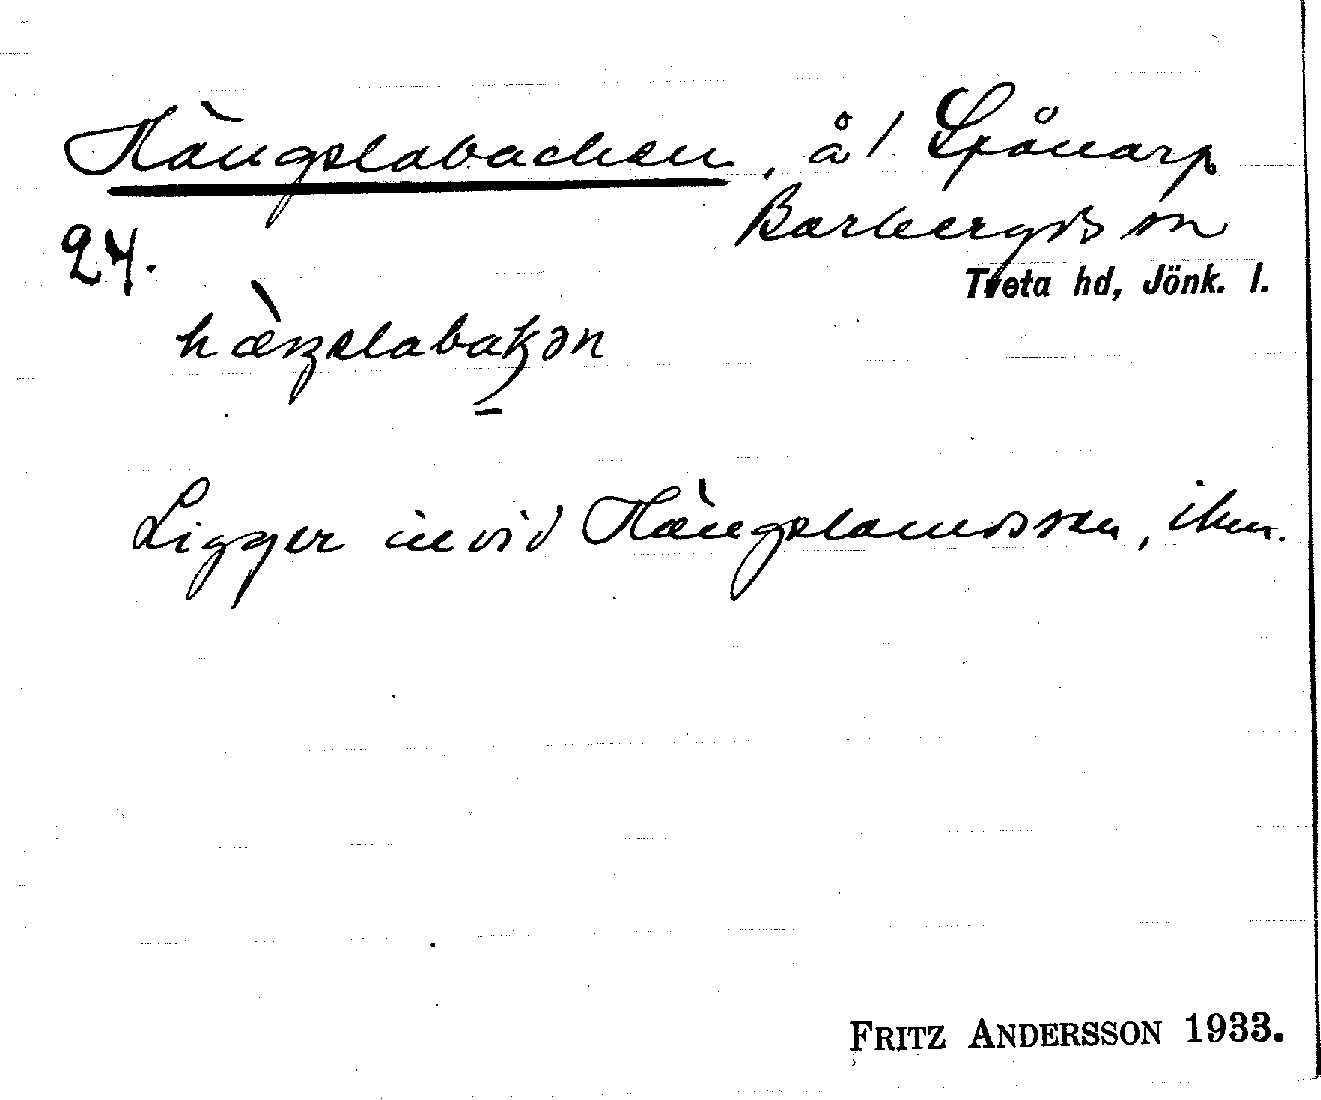 Hängslabacken, å/ Spånarp
Barkeryds sn
Tveta hd, Jönk. l.
24.
hæŋslabakən
Ligger invid Hængslamossen, ibm.
FRITZ ANDERSSON 1933.